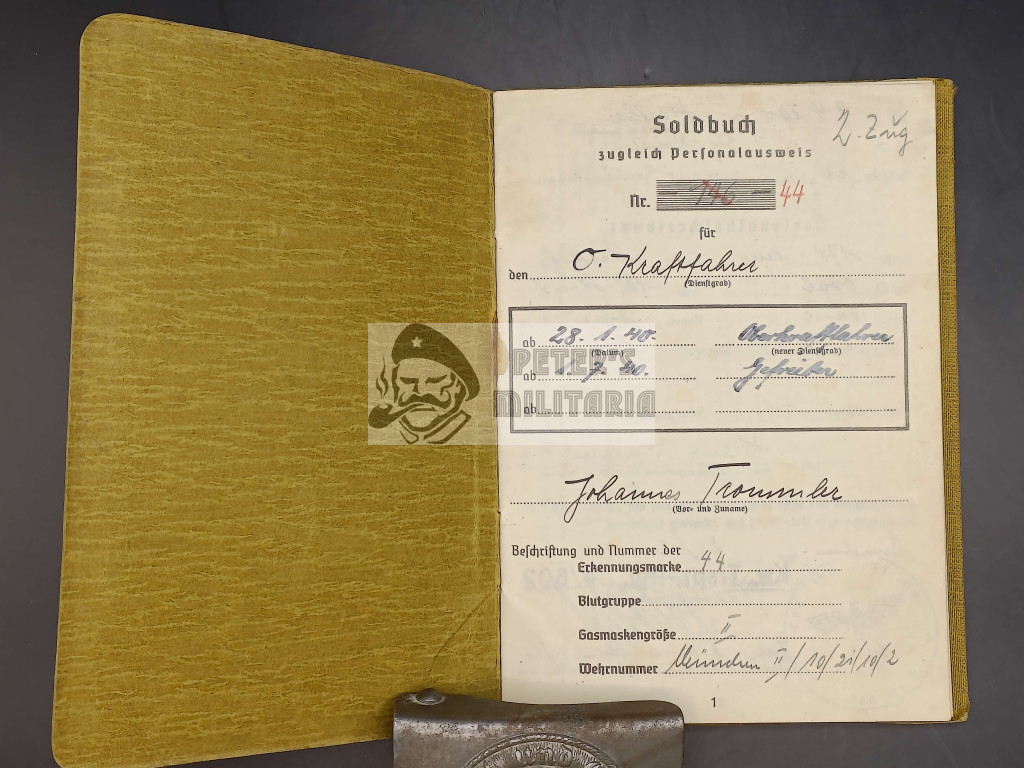 Soldbuch
2. Zug
zugleich Personalausweis
Nr. 146 44
für
den O. Kraftfahrer
(Dienstgrad)
ab 28. 1. 40. Oberkraftfahrer
(Datum) (neuer Dienstgrad)
ab 1. 7. 40. Gefreiter
ab
PETER'S
MILITARIA
Johannes Trommler
(Vor- und Zuname)
Beschriftung und Nummer der
Erkennungsmarke 44
Blutgruppe
Gasmaskengröße II
Wehrnummer München II/10/21/10/2
1